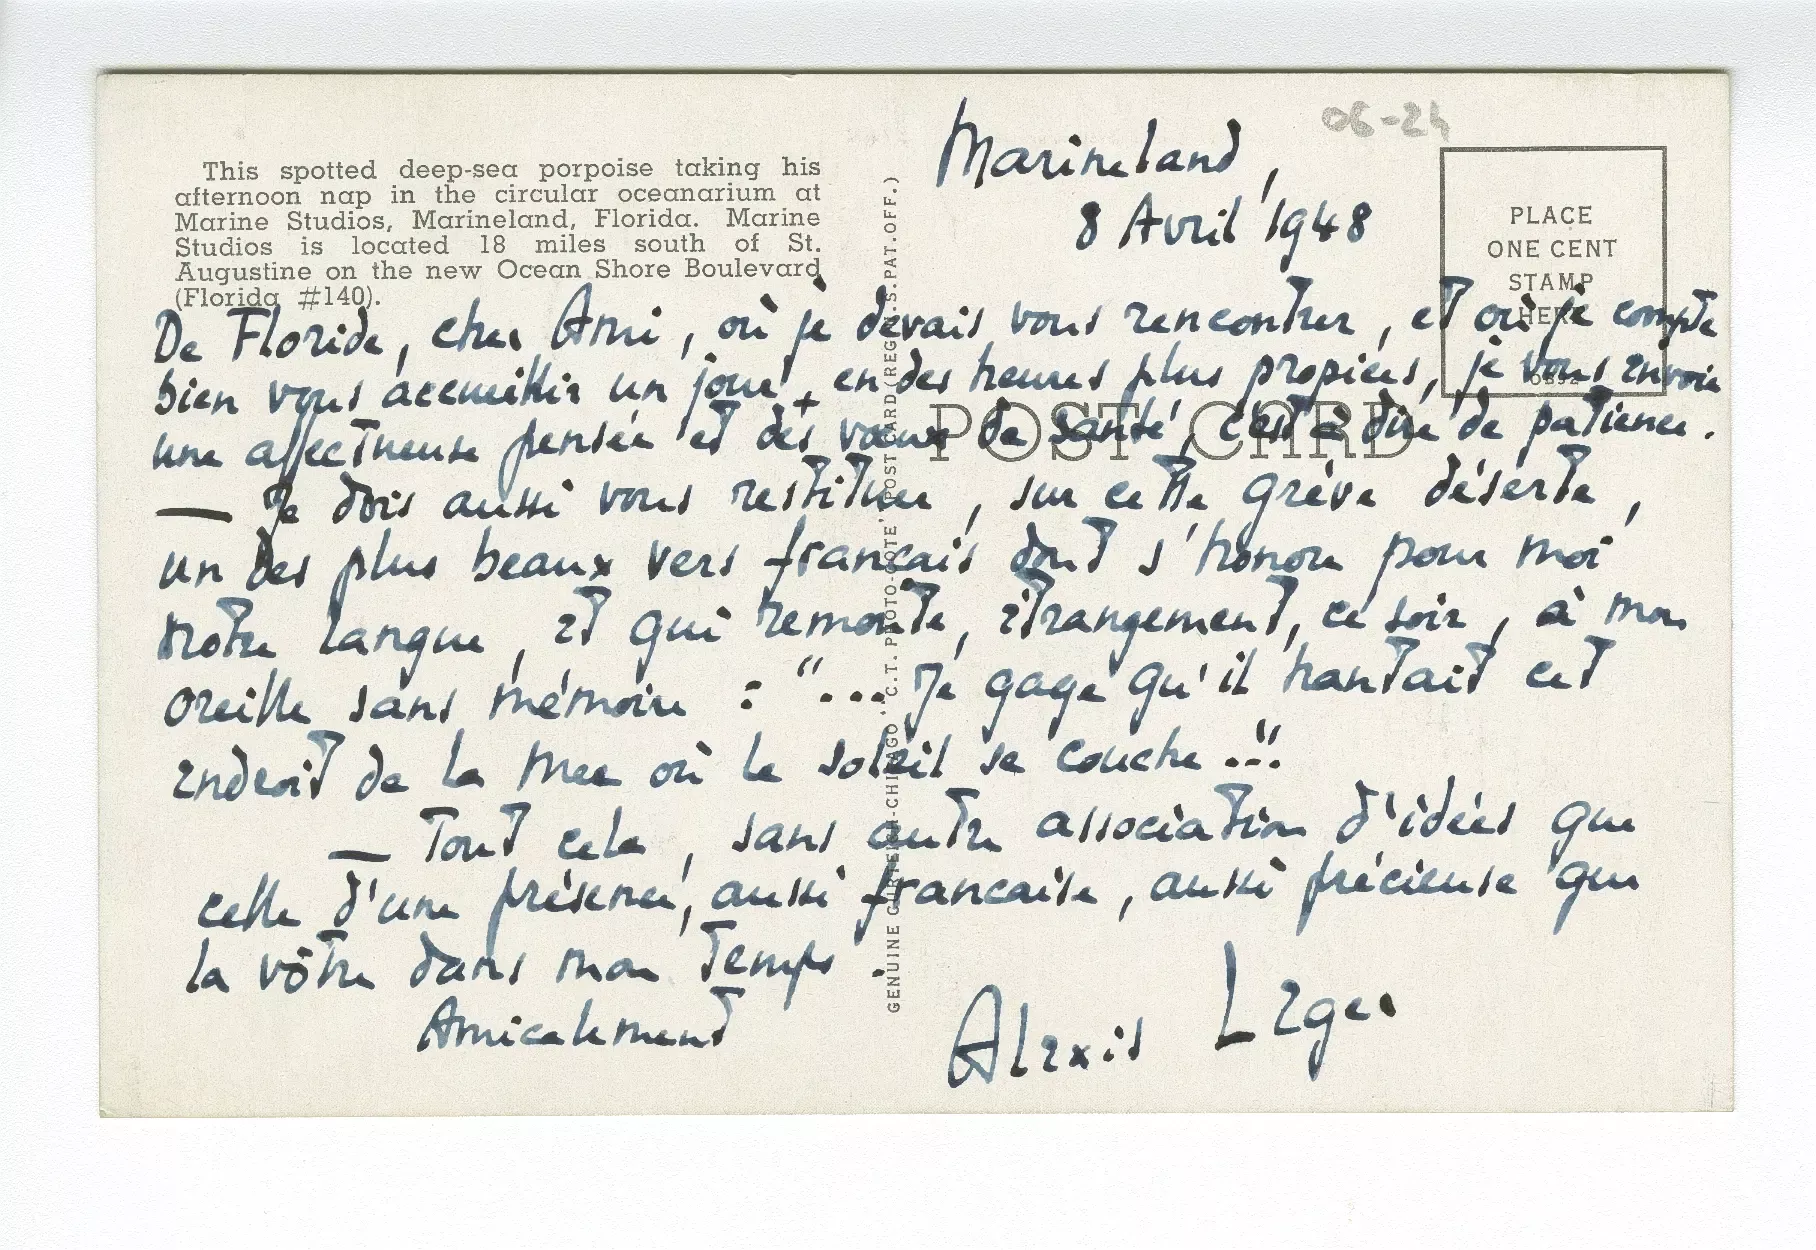 This spotted deep-sea porpoise taking his
afternoon nap in the circular oceanarium at
Marine Studios, Marineland, Florida. Marine
Studios is located 18 miles south of St.
Augustine on the new Ocean Shore Boulevard
(Florida #140).
GENUINE CURTEICH-CHICAGO "C.T. PHOTO-COTE" POST CARD (REG. U.S. PAT. OFF.)
06-24
PLACE
ONE CENT
STAMP
HERE
POST CARD
Marineland,
8 Avril 1948
De Floride, cher Ami, où je devais vous rencontrer, et où je compte
bien vous accueillir un jour, en des heures plus propices, je vous envoie
une affectueuse pensée et des vœux de santé, c'est à dire de patience.
— Je dois aussi vous restituer, sur cette grève déserte,
un des plus beaux vers francais dont s'honore pour moi
notre langue, et qui remonte, étrangement, ce soir, à mon
oreille sans mémoire : "... Je gage qu'il hantait cet
endroit de la mer où le soleil se couche..."
— Tout cela, sans autre association d'idées que
celle d'une présence, aussi francaise, aussi précieuse que
la vôtre dans mon temps.
Amicalement
Alexis Leger